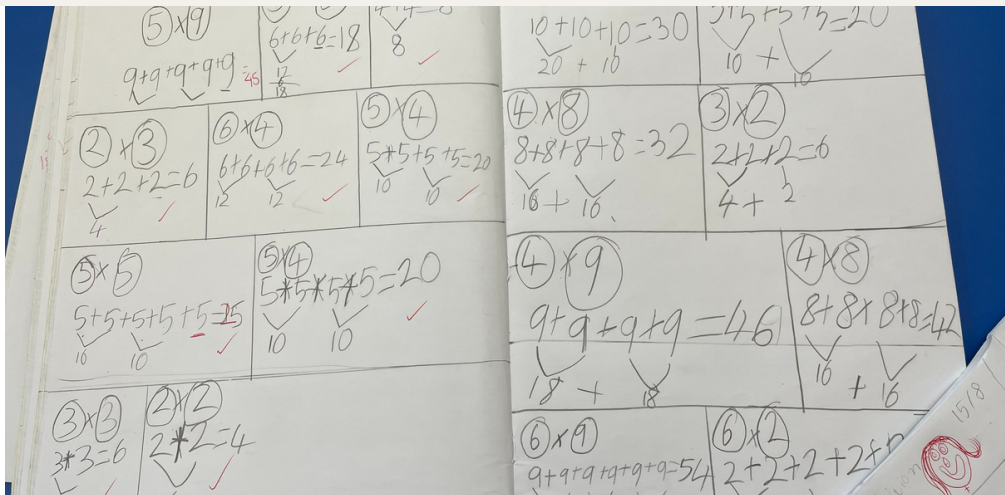 5 x 9
9+9+9+9+9=45
6+6+6=18
12
6
18
8
2 x 3
2+2+2=6
4
6 x 4
6+6+6+6=24
12 12
5 x 4
5+5+5+5=20
10 10
5 x 5
5+5+5+5+5=25
10 10
5 x 4
5*5*5*5=20
10 10
3 x 3
3*3=6
2 x 2
2*2=4
10+10+10=30
20 + 10
5+5+5+5=20
10 + 10
4 x 8
8+8+8+8=32
16 + 16
3 x 2
2+2+2=6
4 + 2
4 x 9
9+9+9+9=46
18 + 18
4 x 8
8+8x8+8=42
16 + 16
6 x 9
9+9+9+9+9+9=54
6 x 2
2+2+2+2+
15/8